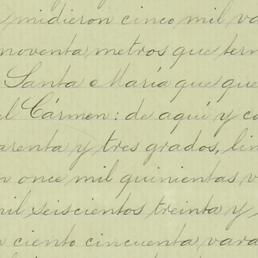 midieron cinco mil va
noventa metros que term
Santa María que que
el Cármen: de aquí y co
arenta y tres grados, lin
n once mil quinientas v
mil seiscientos treinta y
ciento cincuenta vara